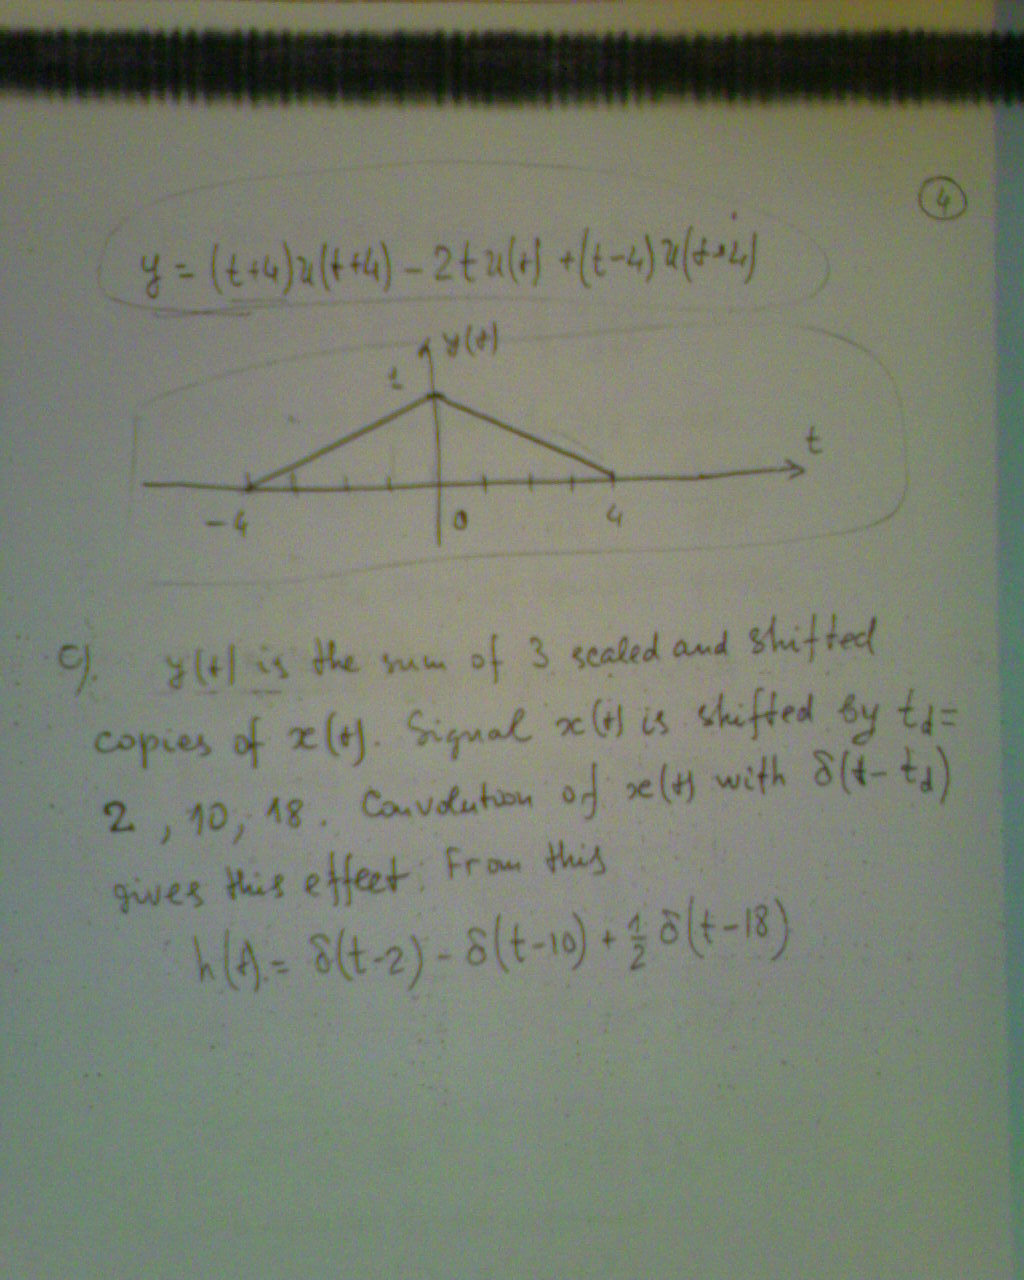 4
y = (t+4)u(t+4) - 2t u(t) + (t-4)u(t-4)
y(t)
1
t
-4 0 4
c). y(t) is the sum of 3 scaled and shifted
copies of x(t). Signal x(t) is shifted by td=
2, 10, 18. Convolution of x(t) with δ(t-td)
gives this effect. From this
h(t) = δ(t-2) - δ(t-10) + 1/2 δ(t-18)